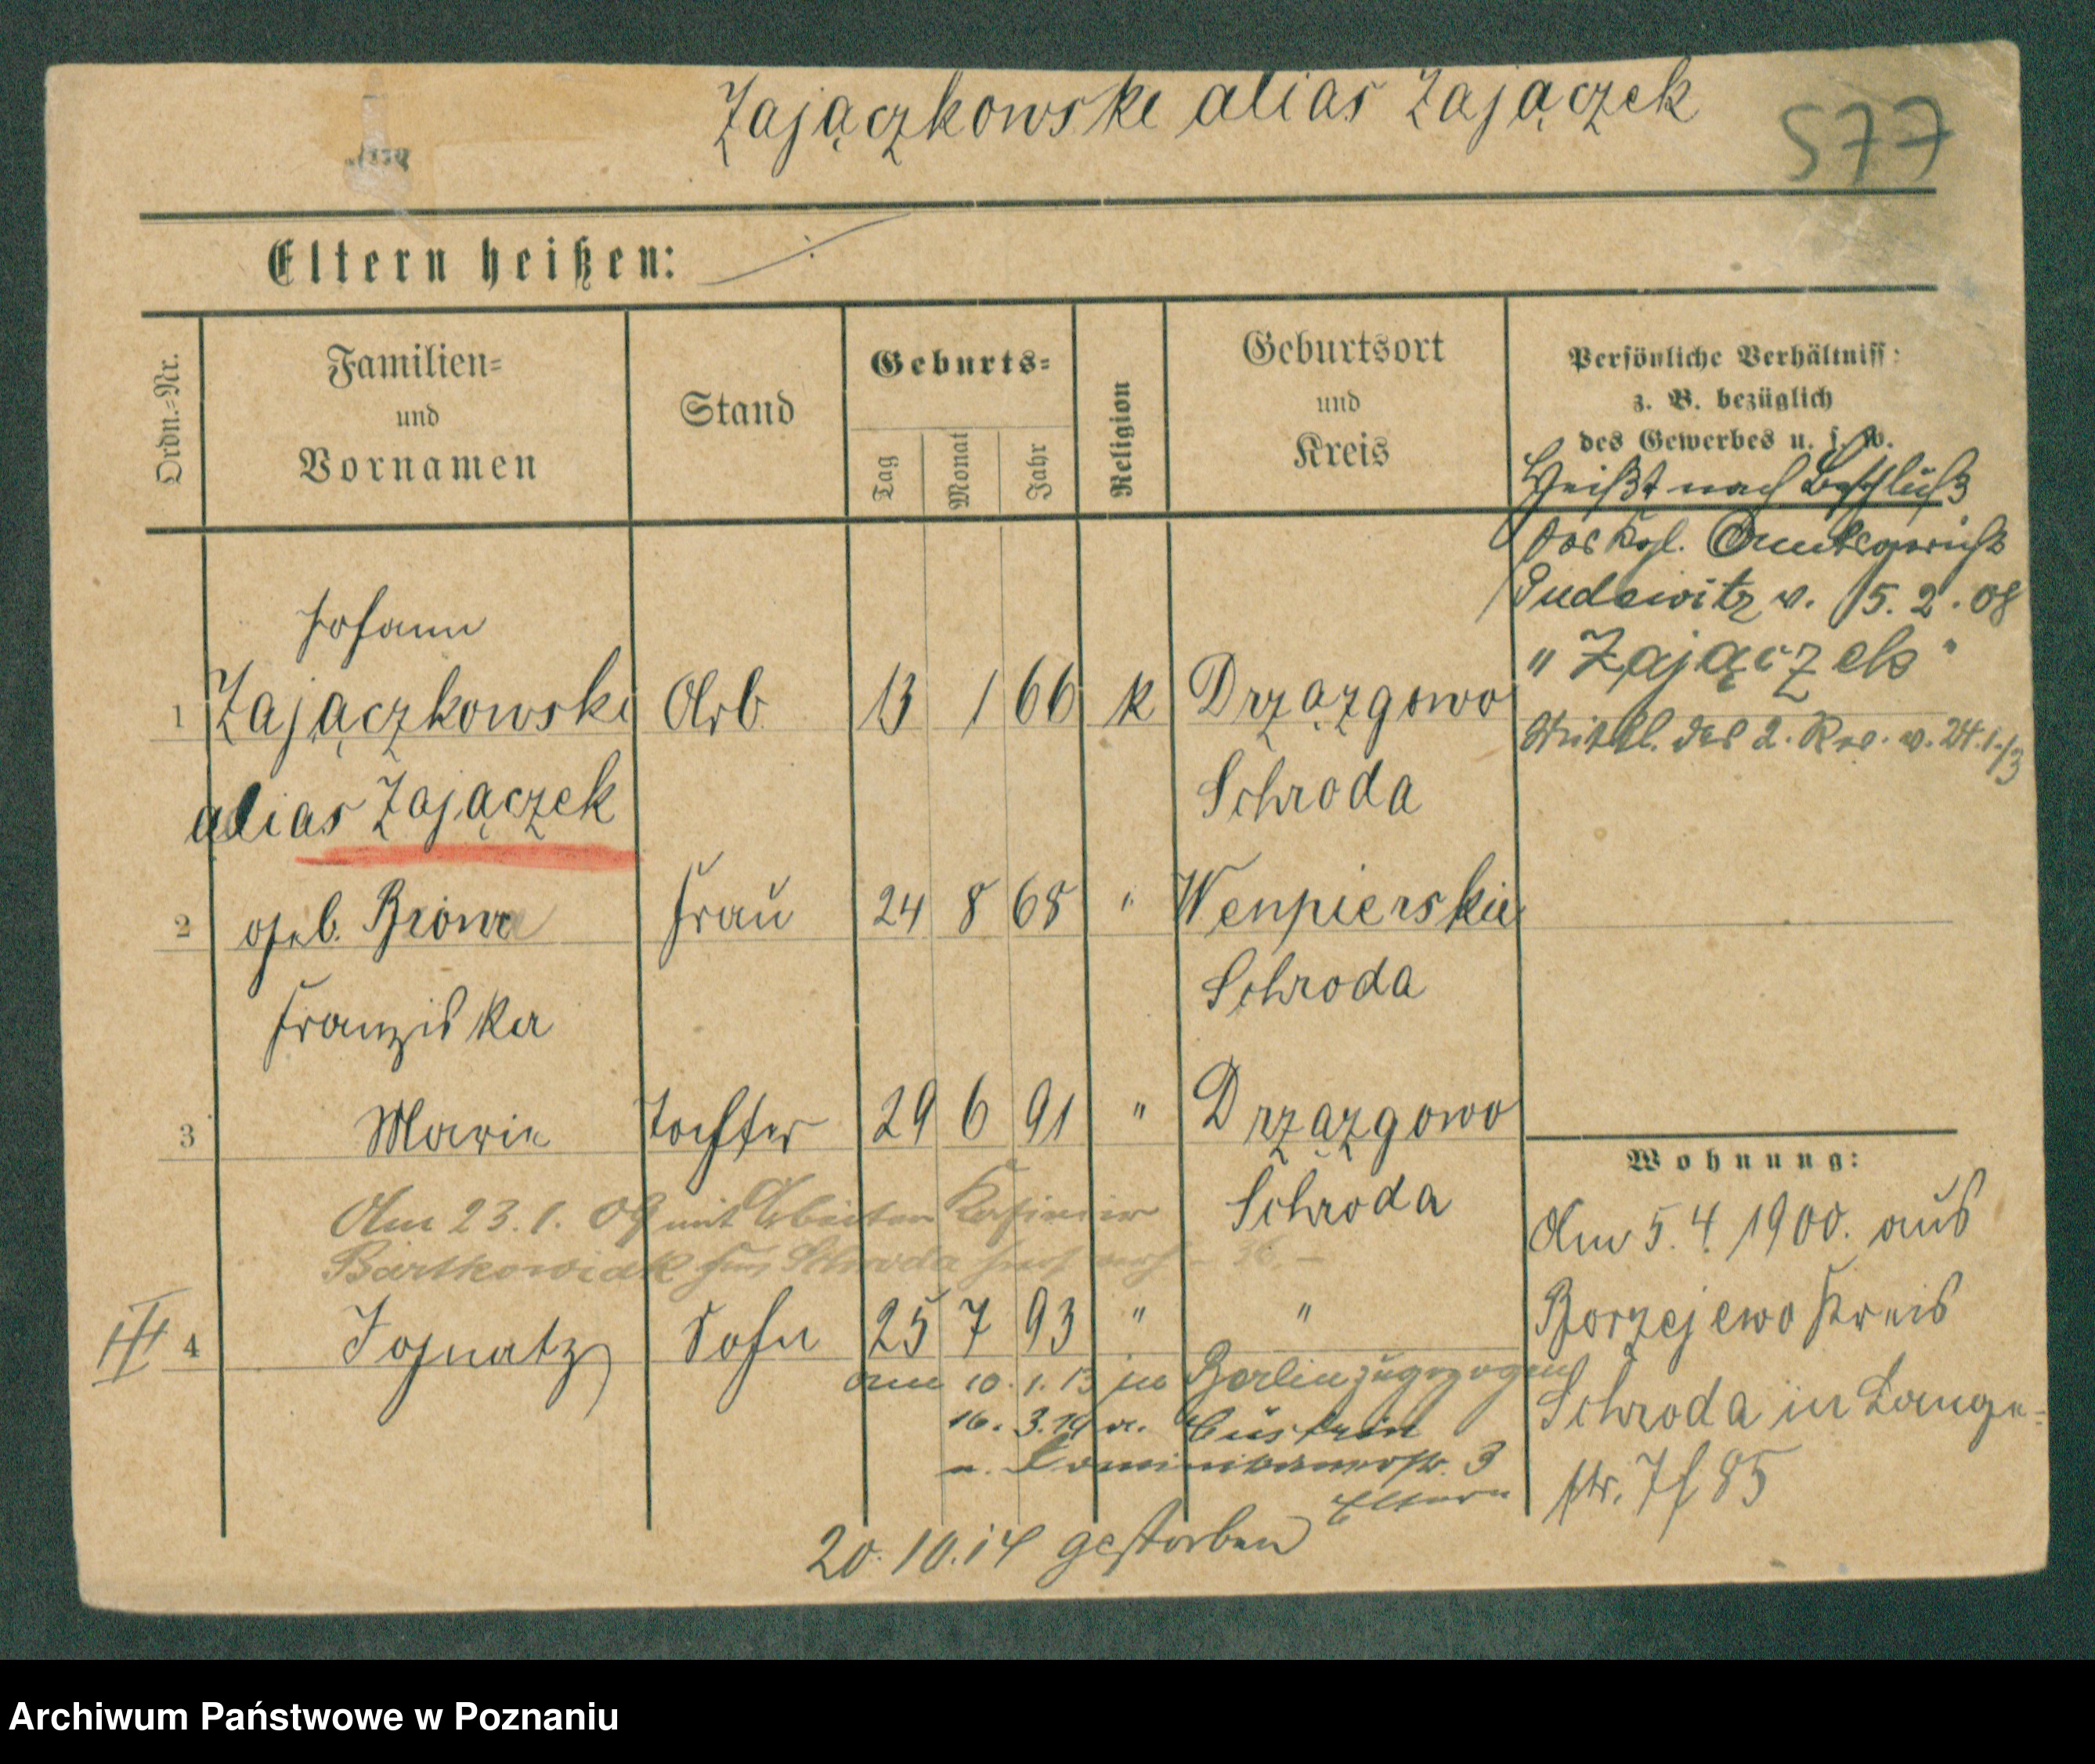 Zajączkowski alias Zajączek
577
Eltern heißen:
Ordn.-Nr.
Familien-
und
Vornamen
Stand
Geburts-
Tag
Monat
Jahr
Religion
Geburtsort
und
Kreis
Persönliche Verhältniss:
z. B. bezüglich
des Gewerbes u. s. w.
Heißt nach Beschluß
des Kgl. Amtsgerichts
Pudewitz v. 15. 2. 08
"Zajączek"
des 2. v. 24.1.13
Johann
1 Zajączkowski Arb 13 1 66 k Drzązgowo
alias Zajączek Schroda
2 geb. Frau 24 8 68 " Wenpierskie
Franziska Schroda
3 Marie Tochter 29 6 91 " Drzązgowo
Schroda
Am 23. 1. 09 mit Arbeiter Kasimir
Bartkowiak aus Schroda
III 4 Ignatz Sohn 25 7 93 " "
am 10. 1. 13 in Berlin zugezogen
16. 3. 14 v. Cüstrin
n. Dominikanerstr. 3
Eltern
20. 10. 14 gestorben
Wohnung:
Am 5. 4. 1900. aus
Borzejewo Kreis
Schroda in Lange-
str. 7 85
Archiwum Państwowe w Poznaniu